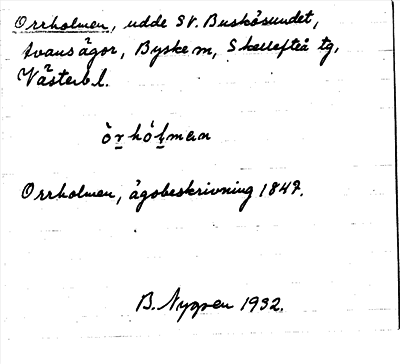 Orrholmen, udde SV. Buskösundet,
Ivans ägor, Byske sn, Skellefteå tg,
Västerb l.
òr̲hól̲man
Orrholmen, ägobeskrivning 1847.
B. Nygren 1932.